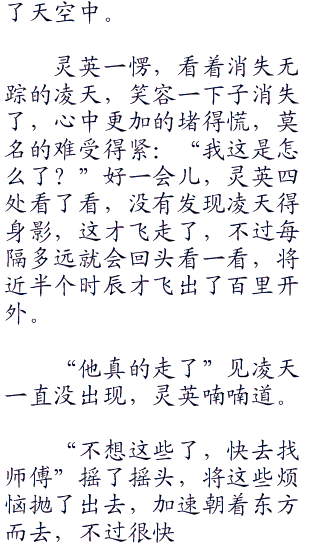 了天空中。
灵英一愣，看着消失无
踪的凌天，笑容一下子消失
了，心中更加的堵得慌，莫
名的难受得紧：“我这是怎
么了？”好一会儿，灵英四
处看了看，没有发现凌天得
身影，这才飞走了，不过每
隔多远就会回头看一看，将
近半个时辰才飞出了百里开
外。
“他真的走了”见凌天
一直没出现，灵英喃喃道。
“不想这些了，快去找
师傅”摇了摇头，将这些烦
恼抛了出去，加速朝着东方
而去，不过很快